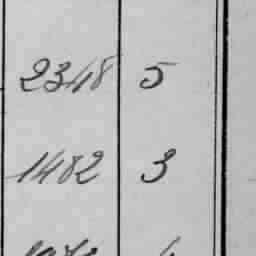 2348 5
1482 3